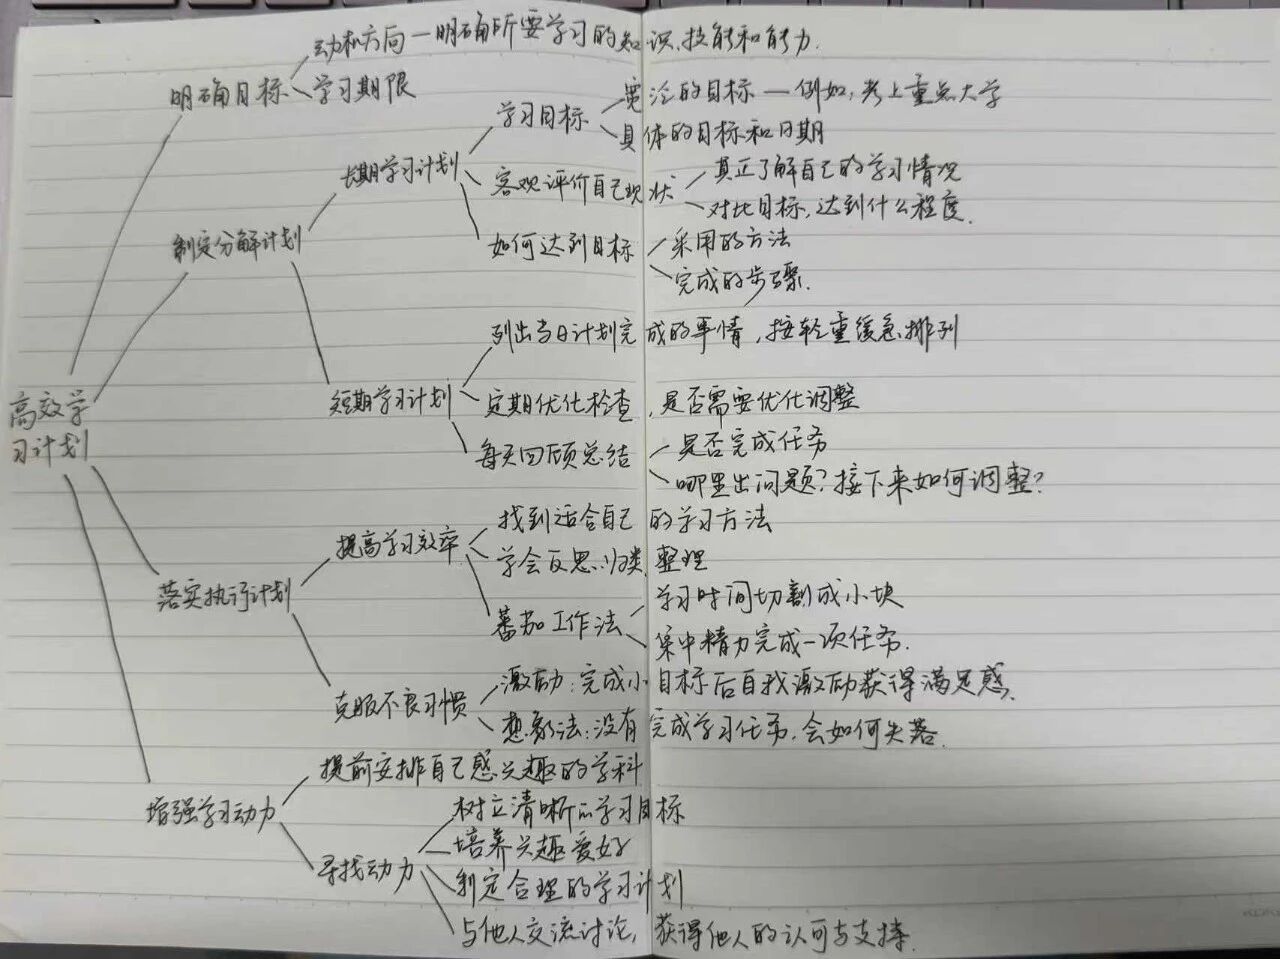 动机方向—明确所要学习的知识、技能和能力.
明确目标
学习期限
学习目标
宽泛的目标—例如,考上重点大学
具体的目标和日期
长期学习计划
客观评价自己现状
真正了解自己的学习情况
对比目标,达到什么程度.
制定分解计划
如何达到目标
采用的方法
完成的步骤.
列出当日计划完成的事情,按轻重缓急排列
短期学习计划
定期优化检查,是否需要优化调整
每天回顾总结
是否完成任务
哪里出问题?接下来如何调整?
高效学
习计划
提高学习效率
找到适合自己的学习方法
学会反思、归类、整理
落实执行计划
番茄工作法
学习时间切割成小块
集中精力完成一项任务.
克服不良习惯
激励:完成小目标后自我激励获得满足感.
想象法:没有完成学习任务,会如何失落.
提前安排自己感兴趣的学科
增强学习动力
树立清晰的学习目标
培养兴趣爱好
寻找动力
制定合理的学习计划
与他人交流讨论,获得他人的认可与支持.